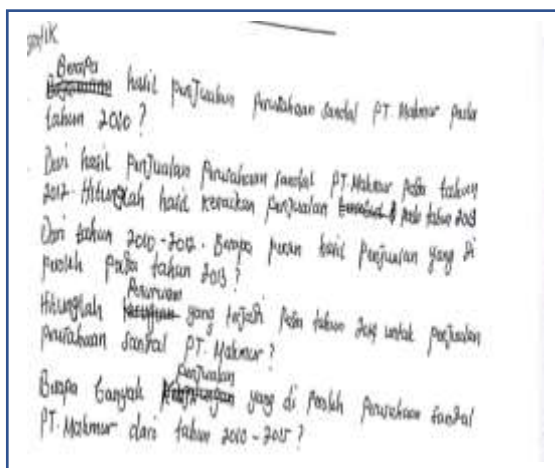 grafik
Berapa hasil penjualan perusahaan sandal PT. Makmur pada
tahun 2010?
Dari hasil penjualan perusahaan sandal PT. Makmur pada tahun
2012. Hitunglah hasil kenaikan penjualan pada tahun 2013
Dari tahun 2010-2012. Berapa hasil penjualan yang di
peroleh pada tahun 2013?
Hitunglah Penurunan yang terjadi pada tahun 2014 untuk penjualan
perusahaan sandal PT. Makmur?
Berapa banyak penjualan yang di peroleh perusahaan sandal
PT. Makmur dari tahun 2010-2015?